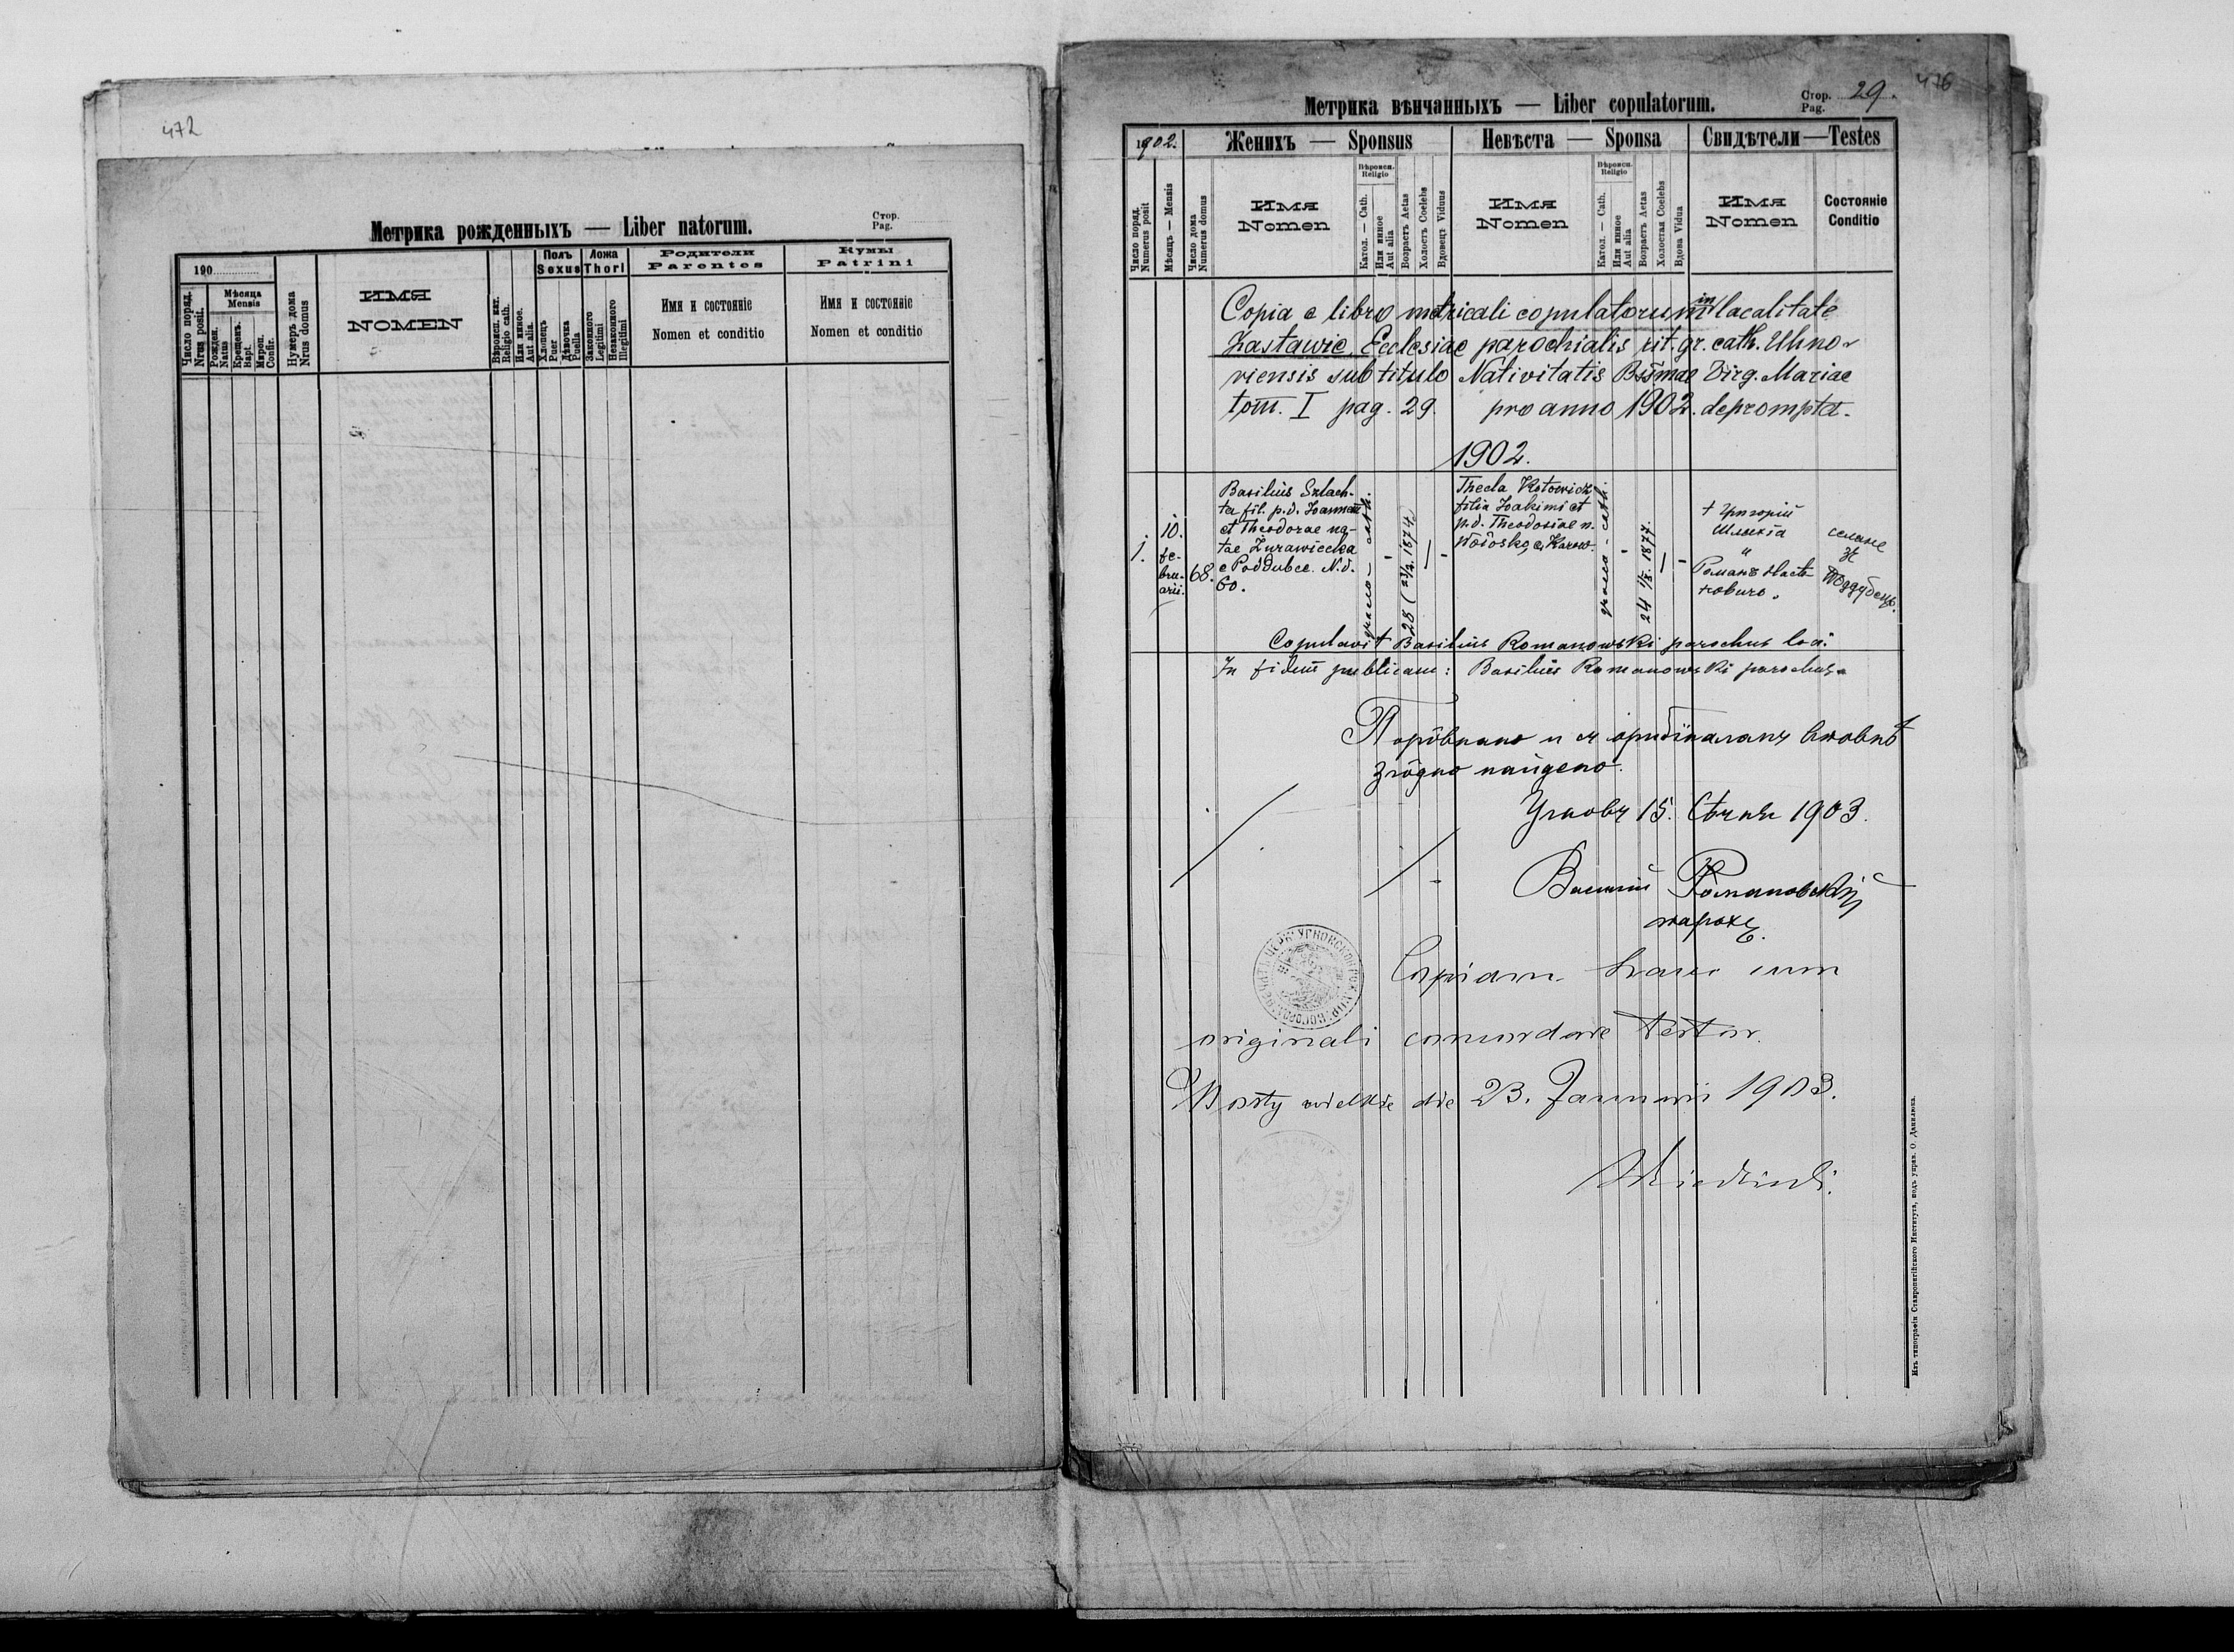 472
Метрика рожденныхъ — Liber natorum.
Стор.
Pag.
190
Число поряд.
Nrus posit.
Мѣсяца
Mensis
Рожден.
Natus
Крещенъ.
Bapt.
Мѵроп.
Confir.
Нумеръ дома
Nrus domus
ИМЯ
NOMEN
Вѣроисп. кат.
Religio cath.
Или иное.
Aut alia.
Полъ
Sexus
Хлопецъ
Puer
Дѣвочка
Puella
Ложа
Thori
Законного
Legitimi
Незаконного
Illegitimi
Родители
Parentes
Имя и состоянiе
Nomen et conditio
Кумы
Patrini
Имя и состоянiе
Nomen et conditio
476
Метрика вѣнчанныхъ — Liber copulatorum.
Стор.
Pag. 29.
1902.
Женихъ — Sponsus
Невѣста — Sponsa
Свидѣтели — Testes
Число поряд.
Numerus posit
Мѣсяцъ — Mensis
Число дома
Numerus domus
Имя
Nomen
Вѣроисп.
Religio
Катол. — Cath.
Или инное
Aut alia
Возрастъ Aetas
Холостъ Coelebs
Вдовецъ Viduus
Имя
Nomen
Вѣроисп.
Religio
Катол. — Cath.
Или инное
Aut alia
Возрастъ Aetas
Холостая Coelebs
Вдова Vidua
Имя
Nomen
Состоянiе
Conditio
Copia e libro metricali copulatorum in lacalitate
Zastawie Ecclesiae parochialis rit. gr. cath. Uhno-
viensis sub titulo Nativitatis Bssmae Virg. Mariae
tom. I pag. 29. pro anno 1902. deprompta.
1902.
1.
10.
fe-
bru-
arii.
68.
Basilius Szlach-
ta fil. p.d. Joannem
et Theodorae na-
tae Żurawiecka
e Poddubce. N.d.
60.
graeco - cath.
28
1874.
Thecla Kotowicz
filia Joakimi et
p.d. Theodosiae n.
graeco - cath.
24 1877.
† Григорій
Шляхта
"
Романъ
селяне
зъ
Поддубець.
Copulavit Basilius Romanowski parochus loci.
In fidem publicam: Basilius Romanowski parochus
Порôвнано и съ оригіналамъ вповнѣ
згôдно найдено.
Угновъ 15. Сѣчня 1903.
Василій Романовскій
парохъ.
Copiam hanc cum
originali concordare testor.
Mosty wielkie die 23. Januarii 1903.
Изъ типографiи Ставропигiйского Института, подъ управ. О. Данилюка.